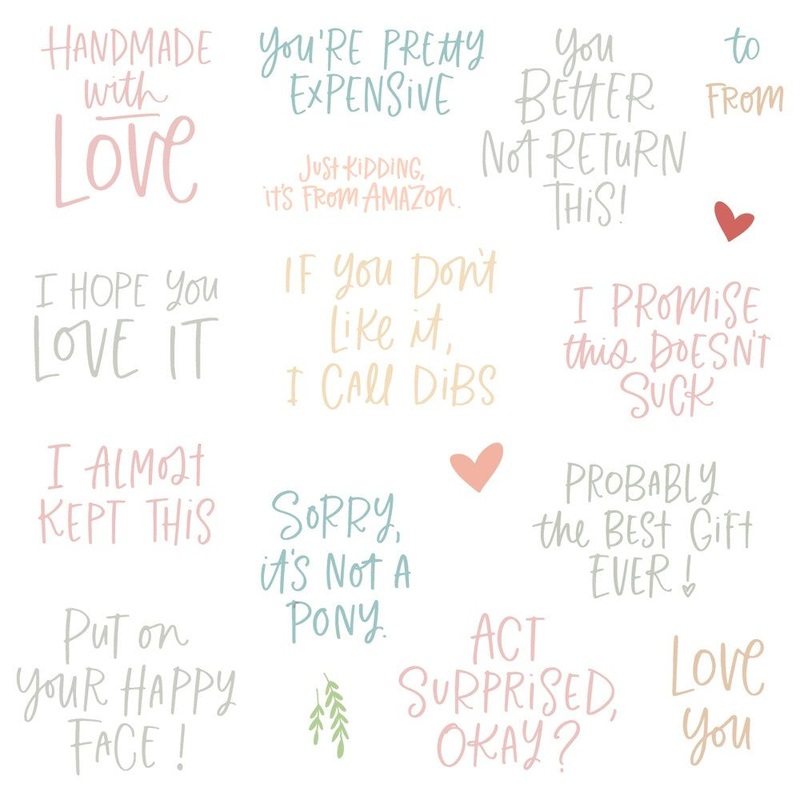 HANDMADE
with
LOVE
YOU'RE PRETTY
EXPENSIVE
JUST KIDDING,
IT'S FROM AMAZON.
You
BETTER
NOT RETURN
THIS!
to
FROM
I HOPE You
LOVE IT
IF You Don't
Like it,
I CAll DiBS
I PROMISE
this DOESN'T
SUCK
I ALMOST
KEPT THIS
SORRY,
it's NOT A
PONY.
PROBABLY
the BEST GIFT
EVER!
PUT on
YOUR HAPPY
FACE!
ACT
SURPRISED,
OKAY?
LOVE
You